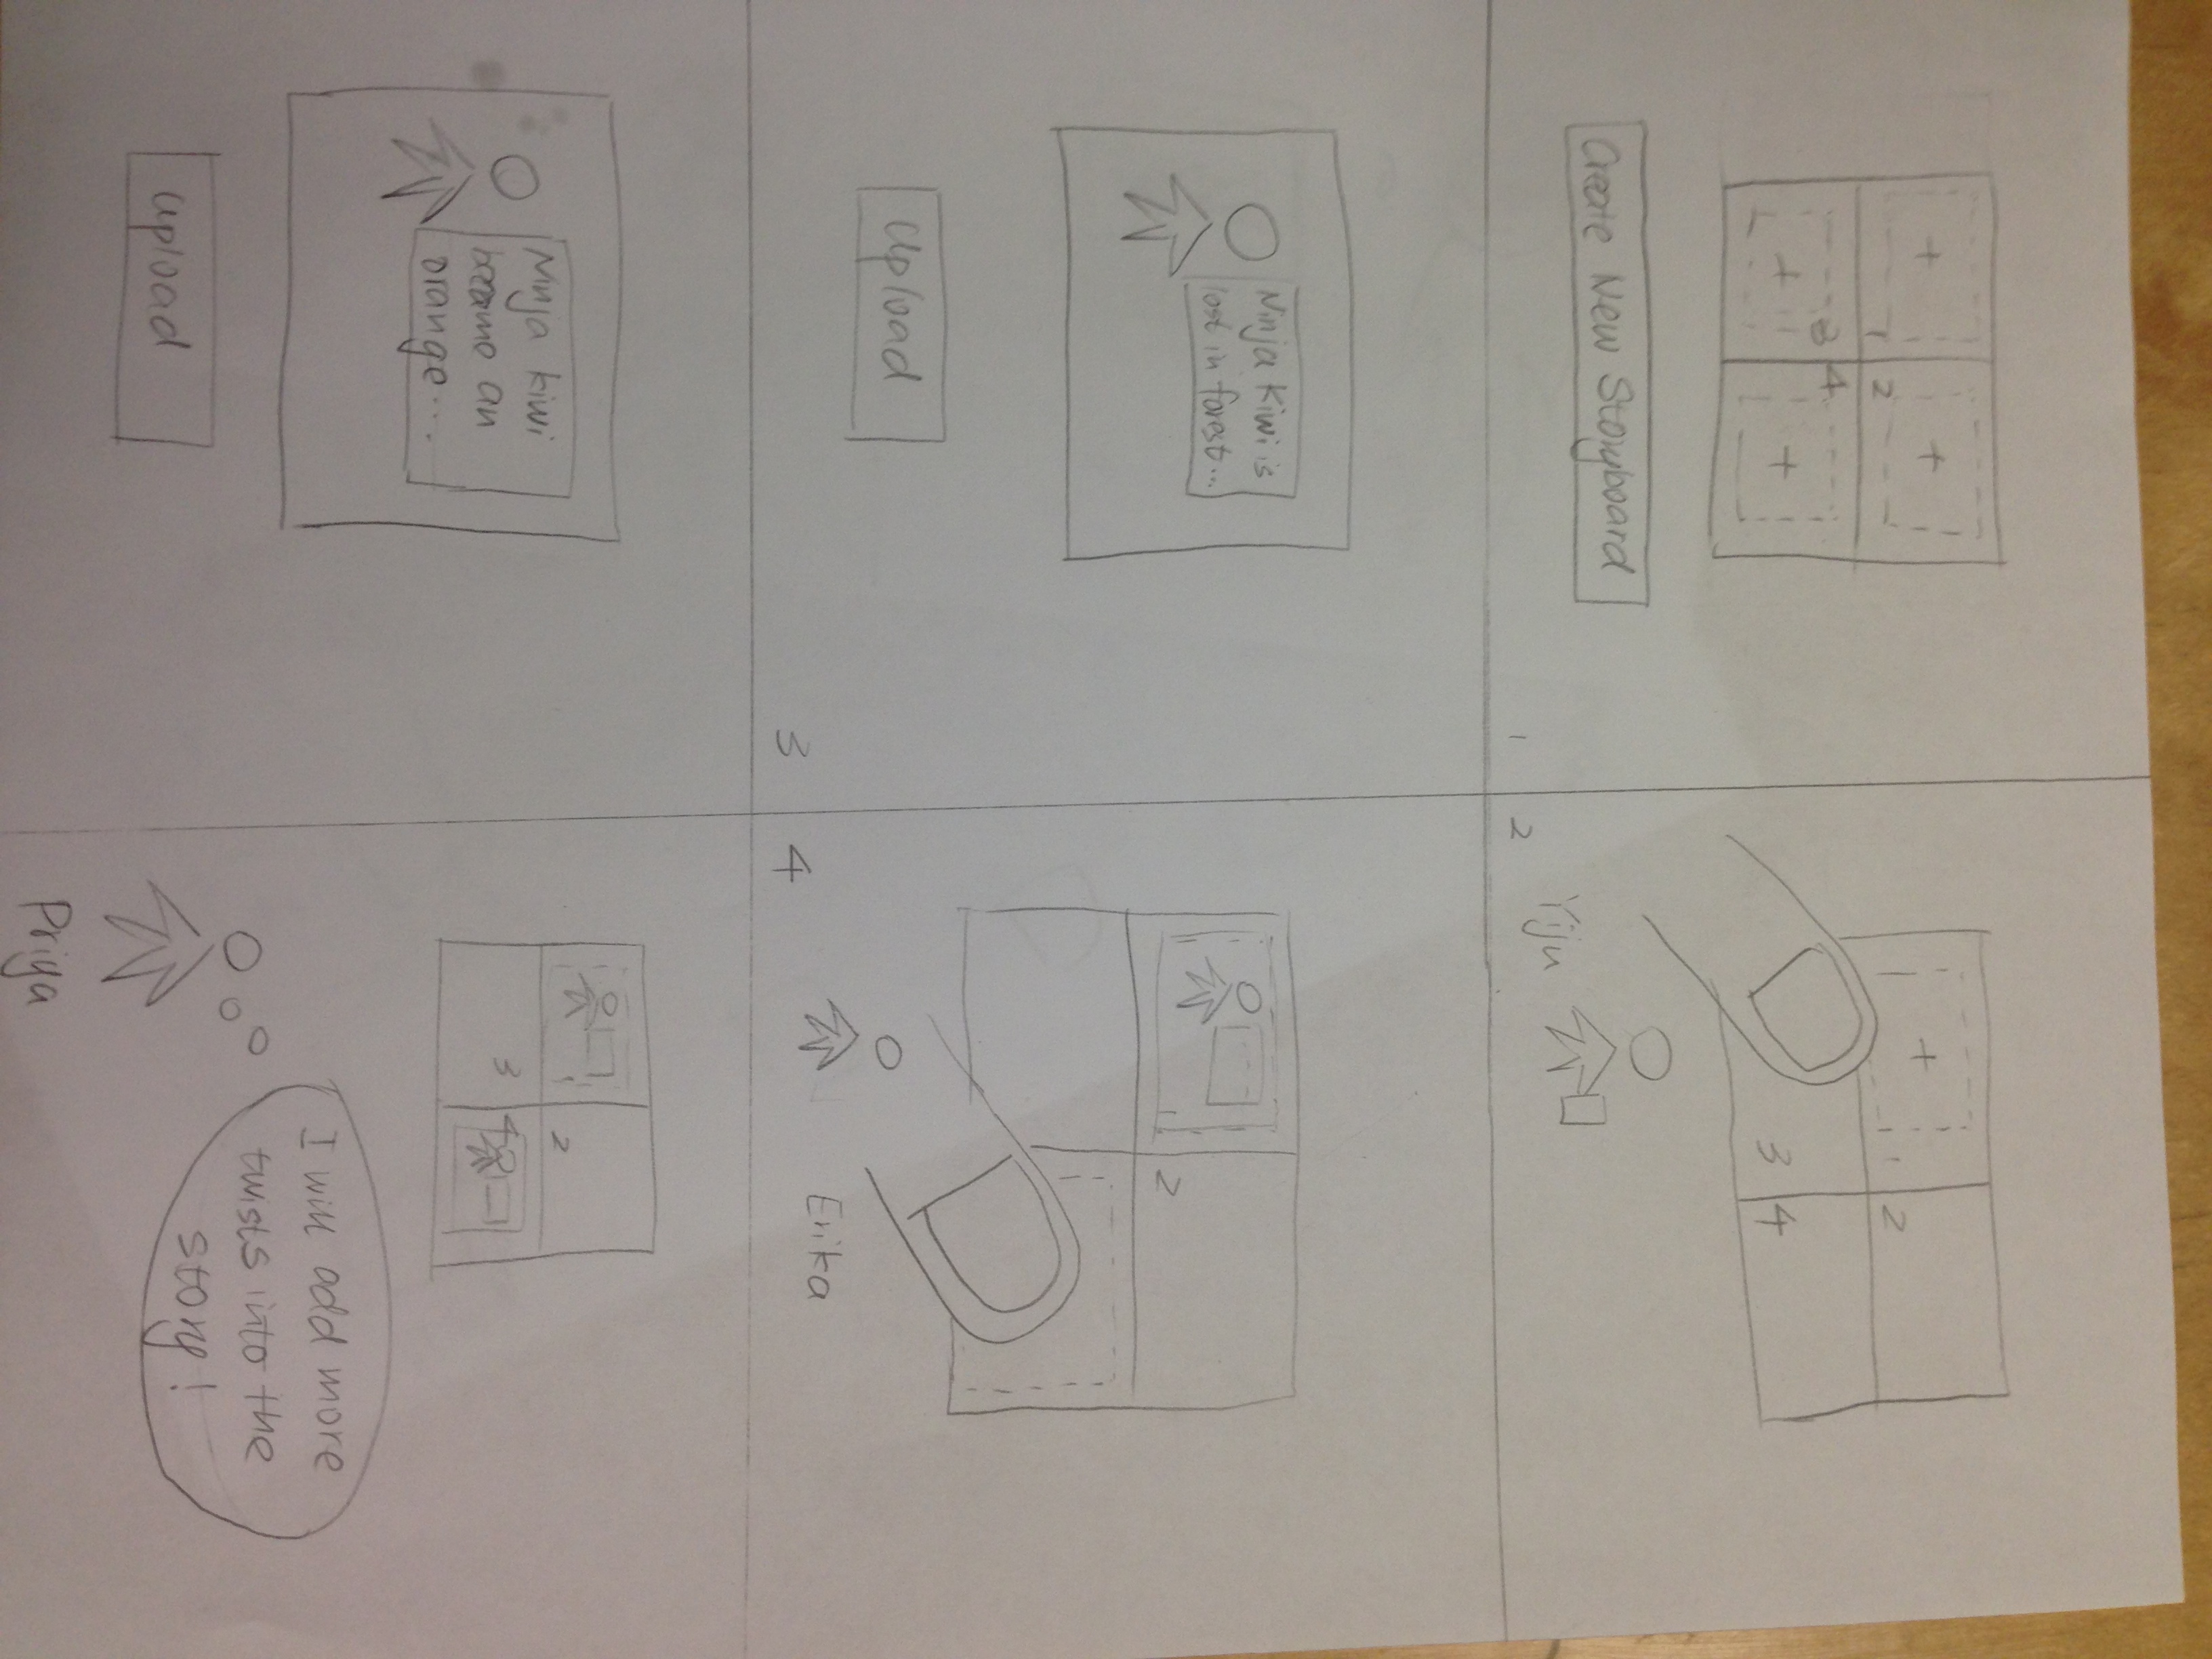 +
+
1
2
3
4
+
+
Create New Storyboard
1
+
1
2
3
4
Yiju
2
Ninja Kiwi is
lost in forest...
Upload
3
2
Erika
4
Ninja kiwi
became an
orange....
upload
1
2
3
4
I will add more
twists into the
story!
Priya